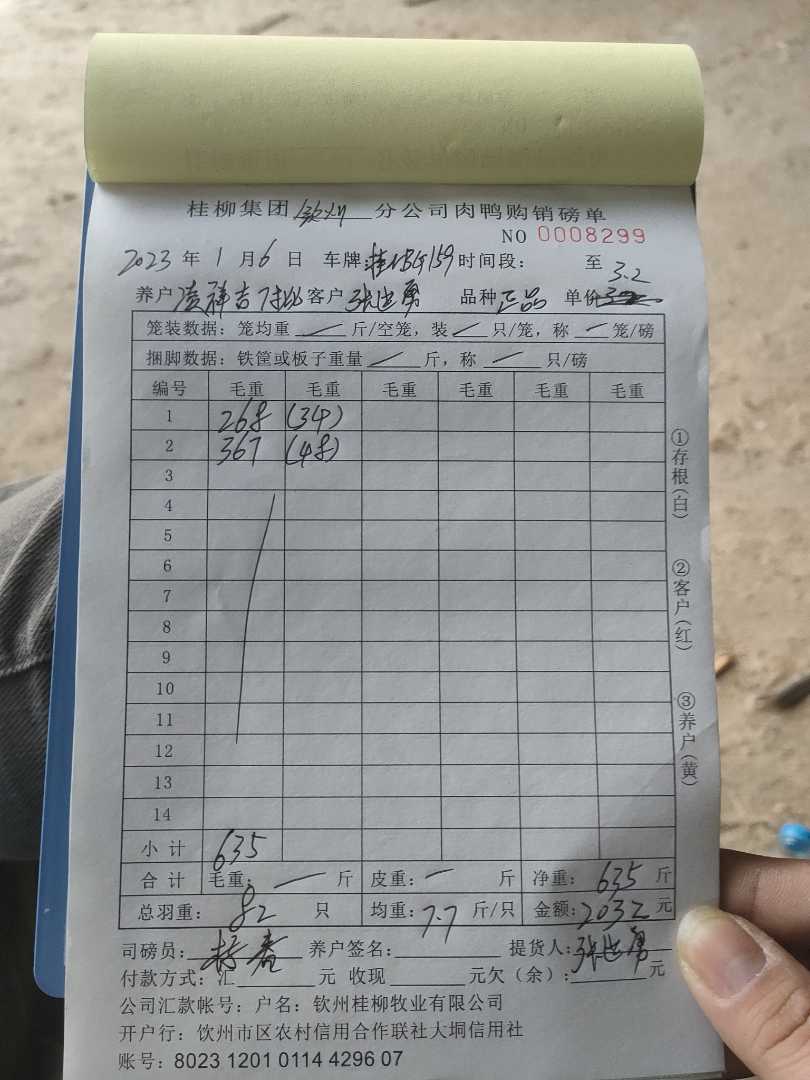 桂柳集团 钦州 分公司肉鸭购销磅单
NO 0008299
2023 年 1 月 6 日 车牌: 159 时间段: 至 3.2
养户 凌祥吉 客户 张 勇 品种 正品 单价
笼装数据: 笼均重 — 斤/空笼, 装 — 只/笼, 称 — 笼/磅
捆脚数据: 铁筐或板子重量 — 斤, 称 — 只/磅
编号 毛重 毛重 毛重 毛重 毛重 毛重
1 268 (34)
2 367 (48)
3
4
5
6
7
8
9
10
11
12
13
14
小计 635
合计 毛重: — 斤 皮重: — 斤 净重: 635 斤
总羽重: 82 只 均重: 7.7 斤/只 金额: 2032 元
司磅员: 养户签名: 提货人: 张 勇
付款方式: 汇 元 收现 元欠(余): 元
公司汇款帐号: 户名: 钦州桂柳牧业有限公司
开户行: 饮州市区农村信用合作联社大垌信用社
账号: 8023 1201 0114 4296 07
①存根(白)
②客户(红)
③养户(黄)